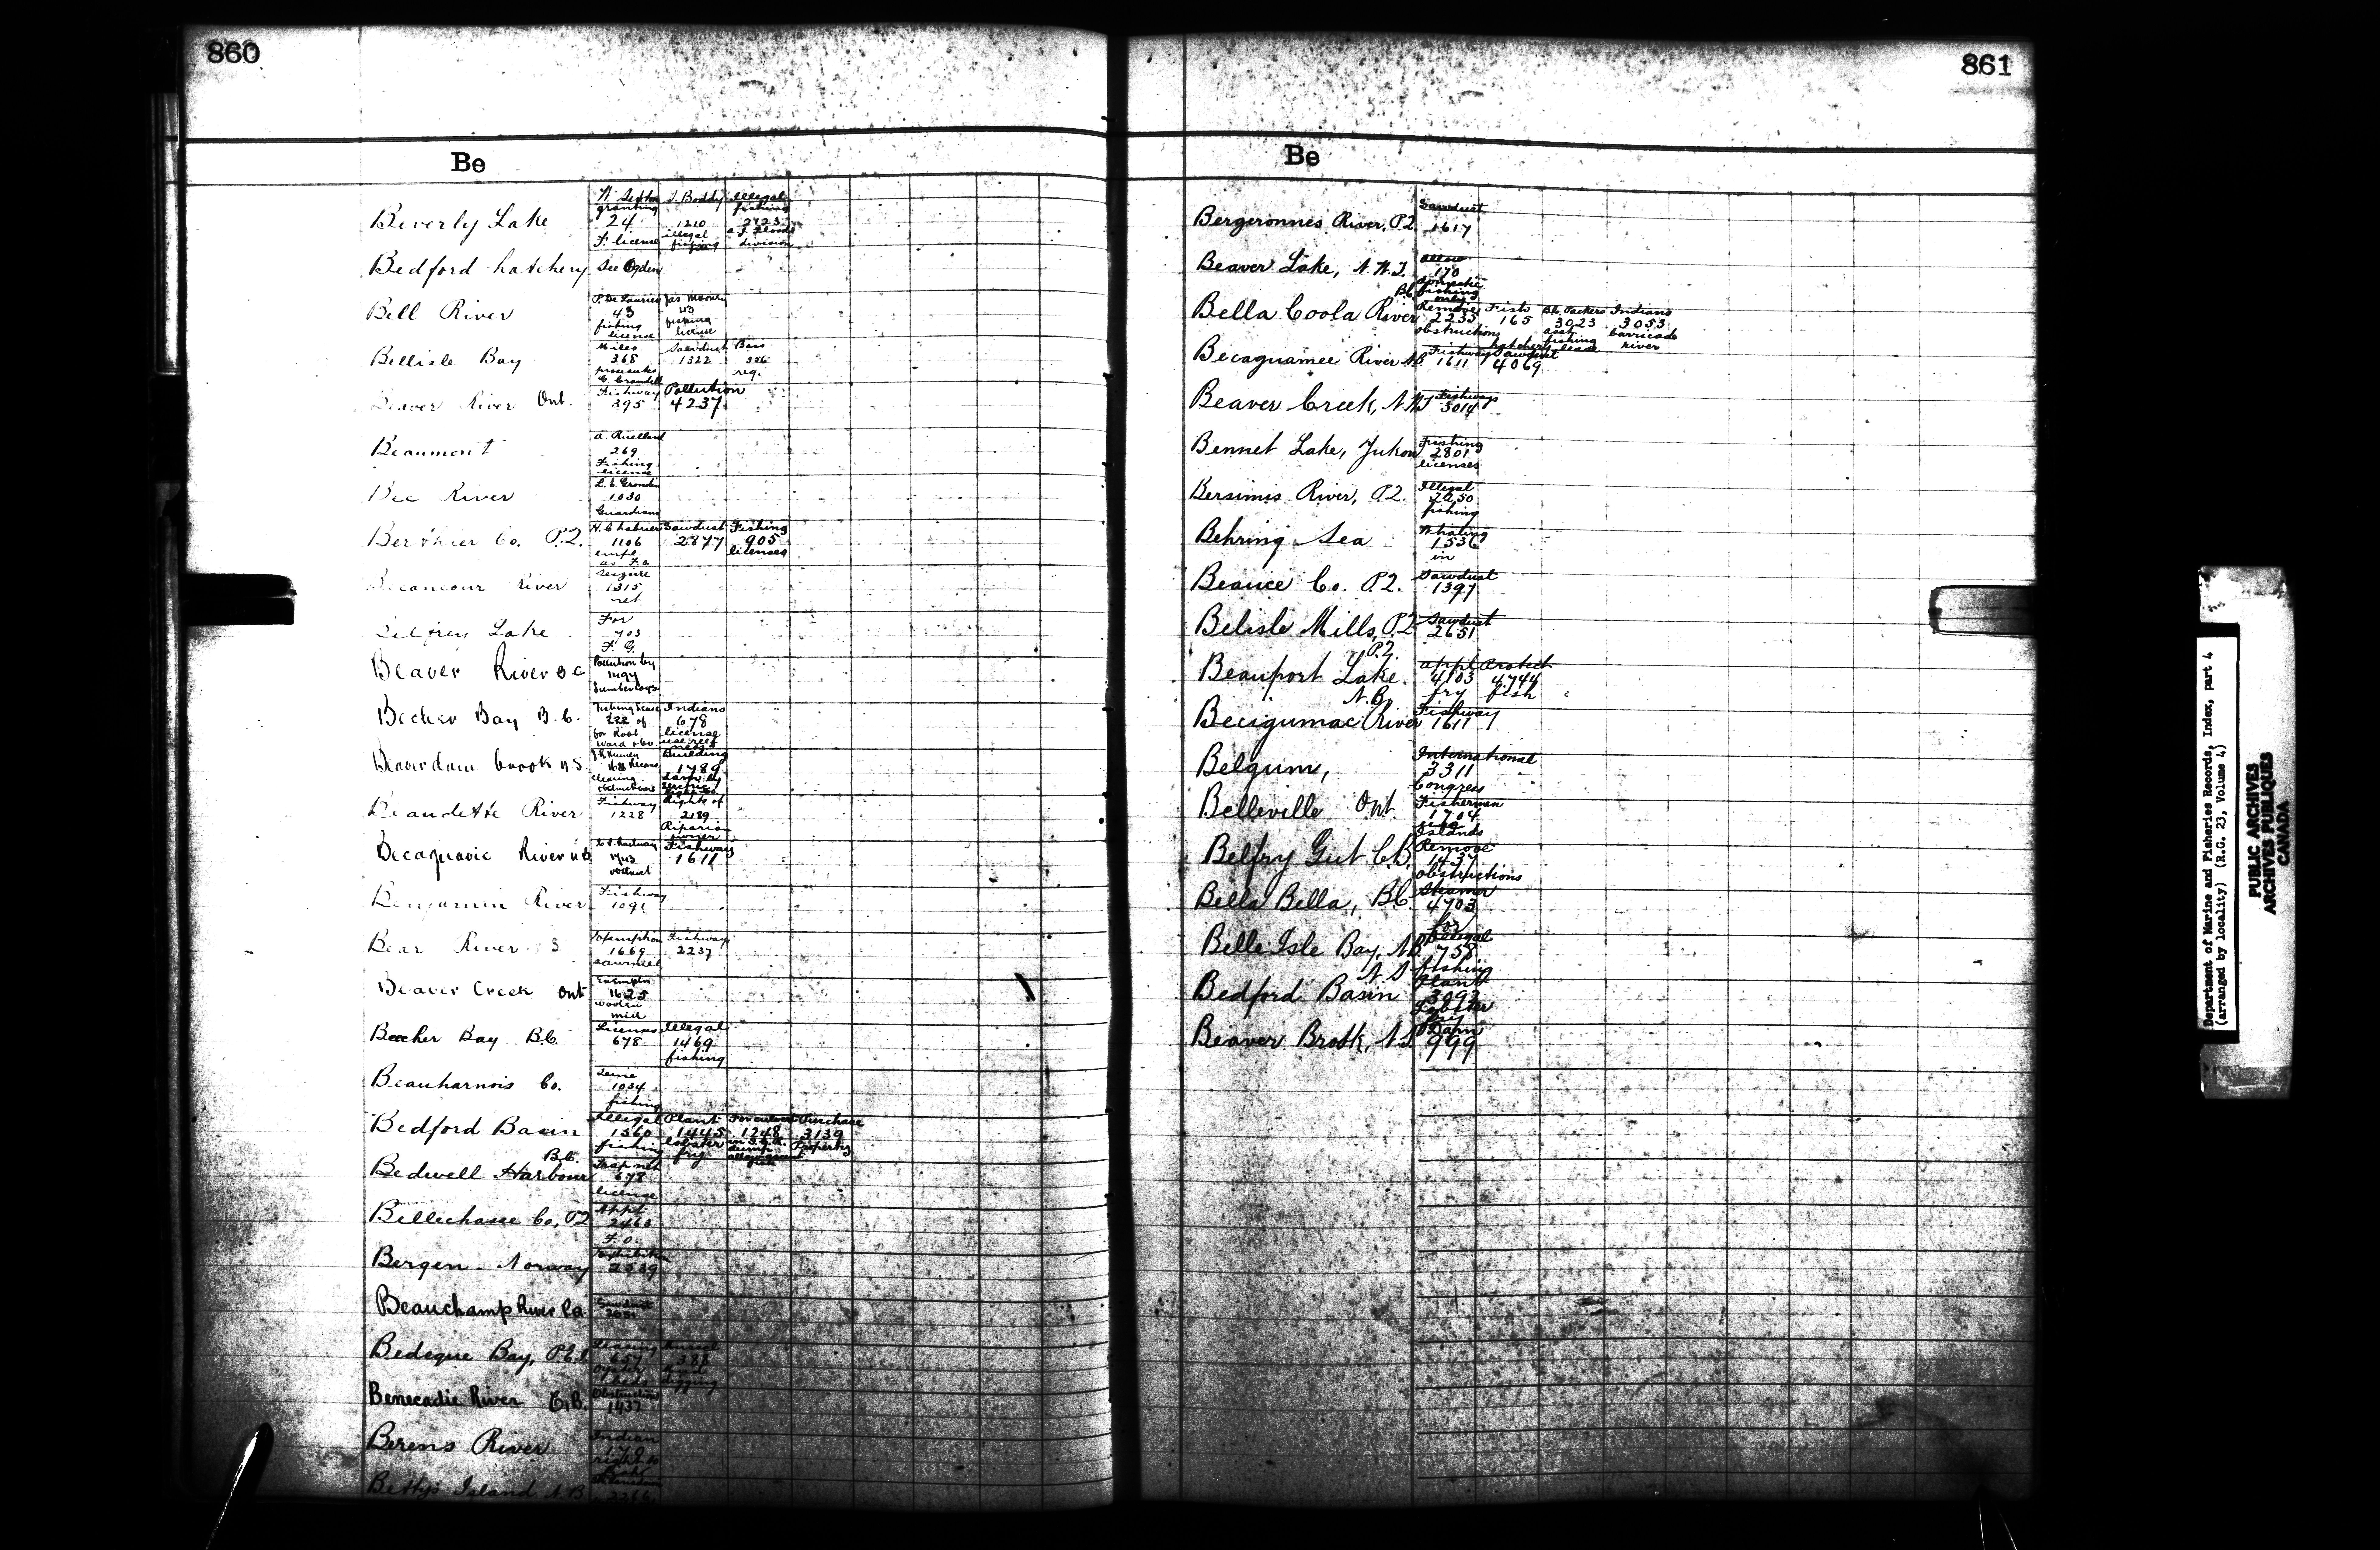 860
Be
Beverly Lake
granting 24 F. license
J. Boddy 1210 illegal fishing
Illegal fishing 2725 division
Bedford hatchery See Ogden
Bell River
43 fishing license
Jas Mooney 43 fishing license
Bellisle Bay
Miles 368
Sawdust 1322
Bass 386 reg.
Beaver River Ont.
Fishway 395
Pollution 4237
Beaumont
269 Fishing license
Bec River
1030 Guardians
Berthier Co. P.Q.
1106 empl. as F.O.
Sawdust 2877
Fishing 905 licenses
Becancour River
Seizure 1315 net
Lake
For 703 F. G.
Beaver River B C
Pollution by 1494
Becher Bay B.C.
Fishing lease 222 of
Indians 678 license
Beaverdam brook N S
clearing
Building 1789
Beaudette River
Fishway 1228
Rights of 2189 Riparian owner
River N B
Fishways 1611
Benjamin River
Fishway
Bear River
Exemption 1669 sawmill
Fishway 2237
Beaver Creek Ont
Exemptn 1625 woolen mill
Beecher Bay B.C.
Licenses 678
Illegal 1469 fishing
Beauharnois Co.
Seine 1034 fishing
Bedford Basin
Illegal 1560 fishing
Plant 1445 lobster fry
1248
Purchase 3139 Property
Bedwell Harbour B.C.
Trap net 678 license
Bellechasse Co, P.Q
Appt 2463 F. O.
Bergen - Norway
Exhibition 2539
Beauchamp River
Sawdust
Bedeque Bay, P.E.I
Leasing 657 Oyster beds
Mussel 388 Mud digging
Benecadie River C.B.
Obstructions 1437
Berens River
Indian 170 right to
Betty's Island N B
2266
861
Be
Bergeronnes River, P.Q.
Sawdust 1617
Beaver Lake, N.W.T.
Allow 170 domestic fishing only
Bella Coola River B.C.
Remove 2235 obstructions
Fish 165 hatchery
B.C. Packers 3023 assn fishing lease
Indians 3053 barricade river
Becaguamee River N.B.
Fishway 1611
Sawdust 4069
Beaver Creek, N.W.T
Fishways 3014
Bennet Lake, Yukon
Fishing 2801 licenses
Bersimis River, P.Q.
Illegal 2250 fishing
Behring Sea
Whaling 1536 in
Beauce Co. P.Q.
Sawdust 1397
Belisle Mills, P.Q
Sawdust 2651
Beauport Lake. P.Q.
appl 4103 fry
Protect 4744 fish
Becigumac River N.B.
Fishway 1611
Belgium,
International 3311 Congress
Belleville Ont
Fishermen 1704 use Islands
Belfry Gut C.B.
Remove 1437 obstructions
Bella Bella, B.C.
Steamer 4703 for
Belle Isle Bay, N.B
Illegal 758 fishing
Bedford Basin N S
Plant 3093 Lobster fry
Beaver Brook, N.S
Dam 999
Department of Marine and Fisheries Records, Index, part 4
(arranged by locality) (R.G. 23, Volume 4)
PUBLIC ARCHIVES
ARCHIVES PUBLIQUES
CANADA